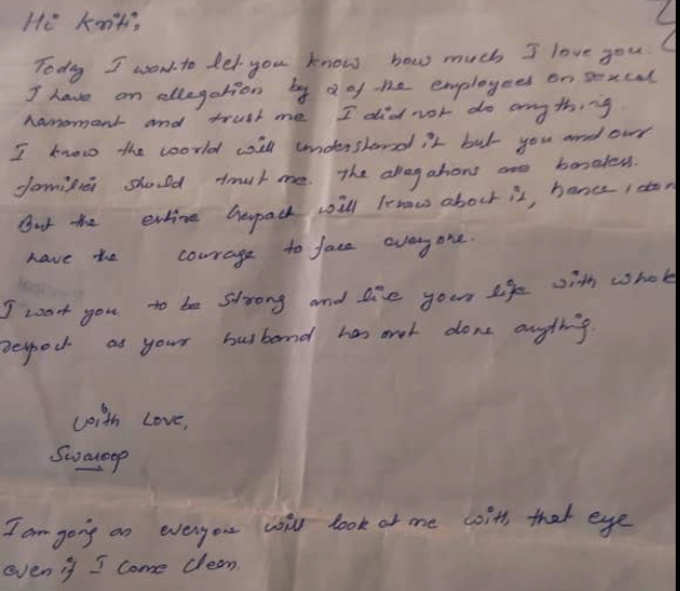 Hi Kriti,
Today I want to let you know how much I love you.
I have an allegation by 2 of the employees on sexual
harrasment and trust me I did not do anything.
I know the world will understand it but you and our
families should trust me. The allegations are baseless.
But the entire will know about it, hence I don
have the courage to face everyone.
I want you to be strong and live your life with whole
respect as your husband has not done anything.
with Love,
Swaroop
I am going as everyone will look at me with that eye
even if I come clean.